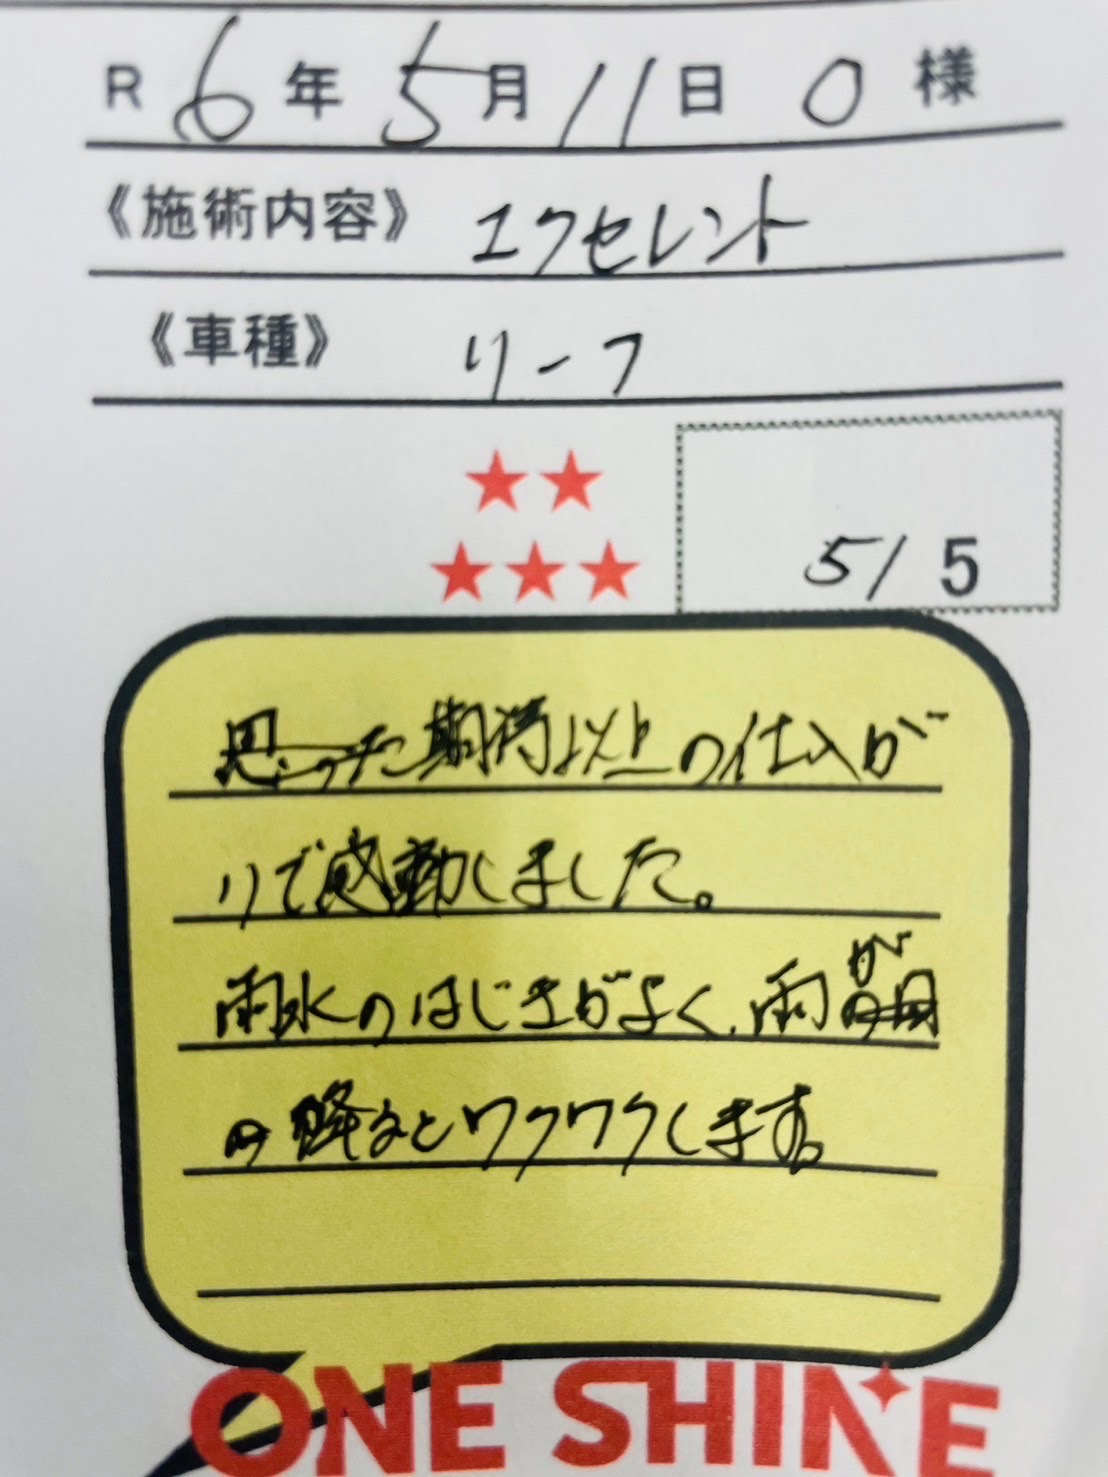 R 6年 5月 11日 O 様
《施術内容》 エクセレント
《車種》 リーフ
★★
★★★
5/5
期待以上の仕上が
りで感動しました。
雨水のはじきがよく、雨が
降るとワクワクします。
ONE SHINE